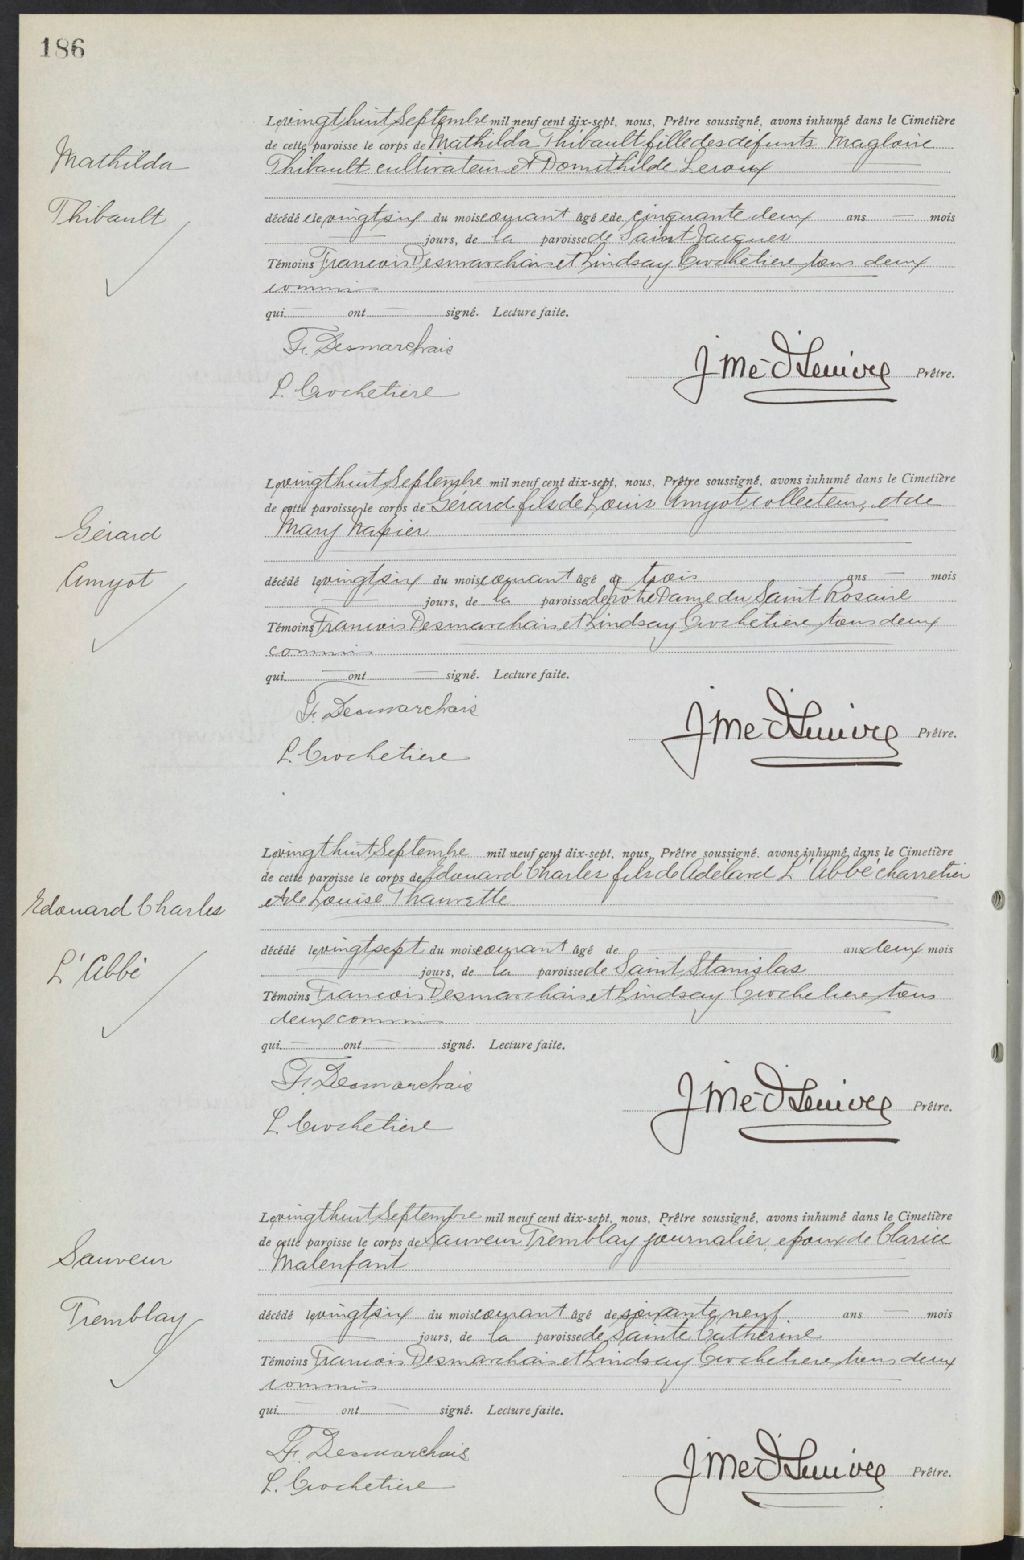 186
Mathilda
Thibault
Le vingt huit Septembre mil neuf cent dix-sept, nous, Prêtre soussigné, avons inhumé dans le Cimetière
de cette paroisse le corps de Mathilda Thibault fille des défunts Magloire
Thibault cultivateur et Domithilde Leroux
décédé e le vingt six du mois courant âgé e de cinquante deux ans — mois
— jours, de la paroisse de Saint Jacques
Témoins Francois Desmarchais et Lindsay Crochetiere tous deux
commis
qui — ont — signé. Lecture faite.
F. Desmarchais
L. Crochetiere
Prêtre.
Gérard
Amyot
Le vingt huit Septembre mil neuf cent dix-sept, nous, Prêtre soussigné, avons inhumé dans le Cimetière
de cette paroisse le corps de Gérard fils de Louis Amyot collecteur, et de
Mary Napier
décédé le vingt six du mois courant âgé de trois ans — mois
— jours, de la paroisse de Notre Dame du Saint Rosaire
Témoins Francois Desmarchais et Lindsay Crochetiere tous deux
commis
qui — ont — signé. Lecture faite.
F. Desmarchais
L. Crochetiere
Prêtre.
Edouard Charles
L'Abbé
Le vingt huit Septembre mil neuf cent dix-sept, nous, Prêtre soussigné, avons inhumé dans le Cimetière
de cette paroisse le corps de Edouard Charles fils de Adélard L'Abbé charretier
et de Louise Thaurette
décédé le vingt sept du mois courant âgé de — ans deux mois
— jours, de la paroisse de Saint Stanislas
Témoins Francois Desmarchais et Lindsay Crochetiere tous
deux commis
qui — ont — signé. Lecture faite.
F. Desmarchais
L. Crochetiere
Prêtre.
Sauveur
Tremblay
Le vingt huit Septembre mil neuf cent dix-sept, nous, Prêtre soussigné, avons inhumé dans le Cimetière
de cette paroisse le corps de Sauveur Tremblay journalier, epoux de Clarice
Malenfant
décédé le vingt six du mois courant âgé de soixante neuf ans — mois
— jours, de la paroisse de Sainte Catherine
Témoins Francois Desmarchais et Lindsay Crochetiere tous deux
commis
qui — ont — signé. Lecture faite.
F. Desmarchais
L. Crochetiere
Prêtre.